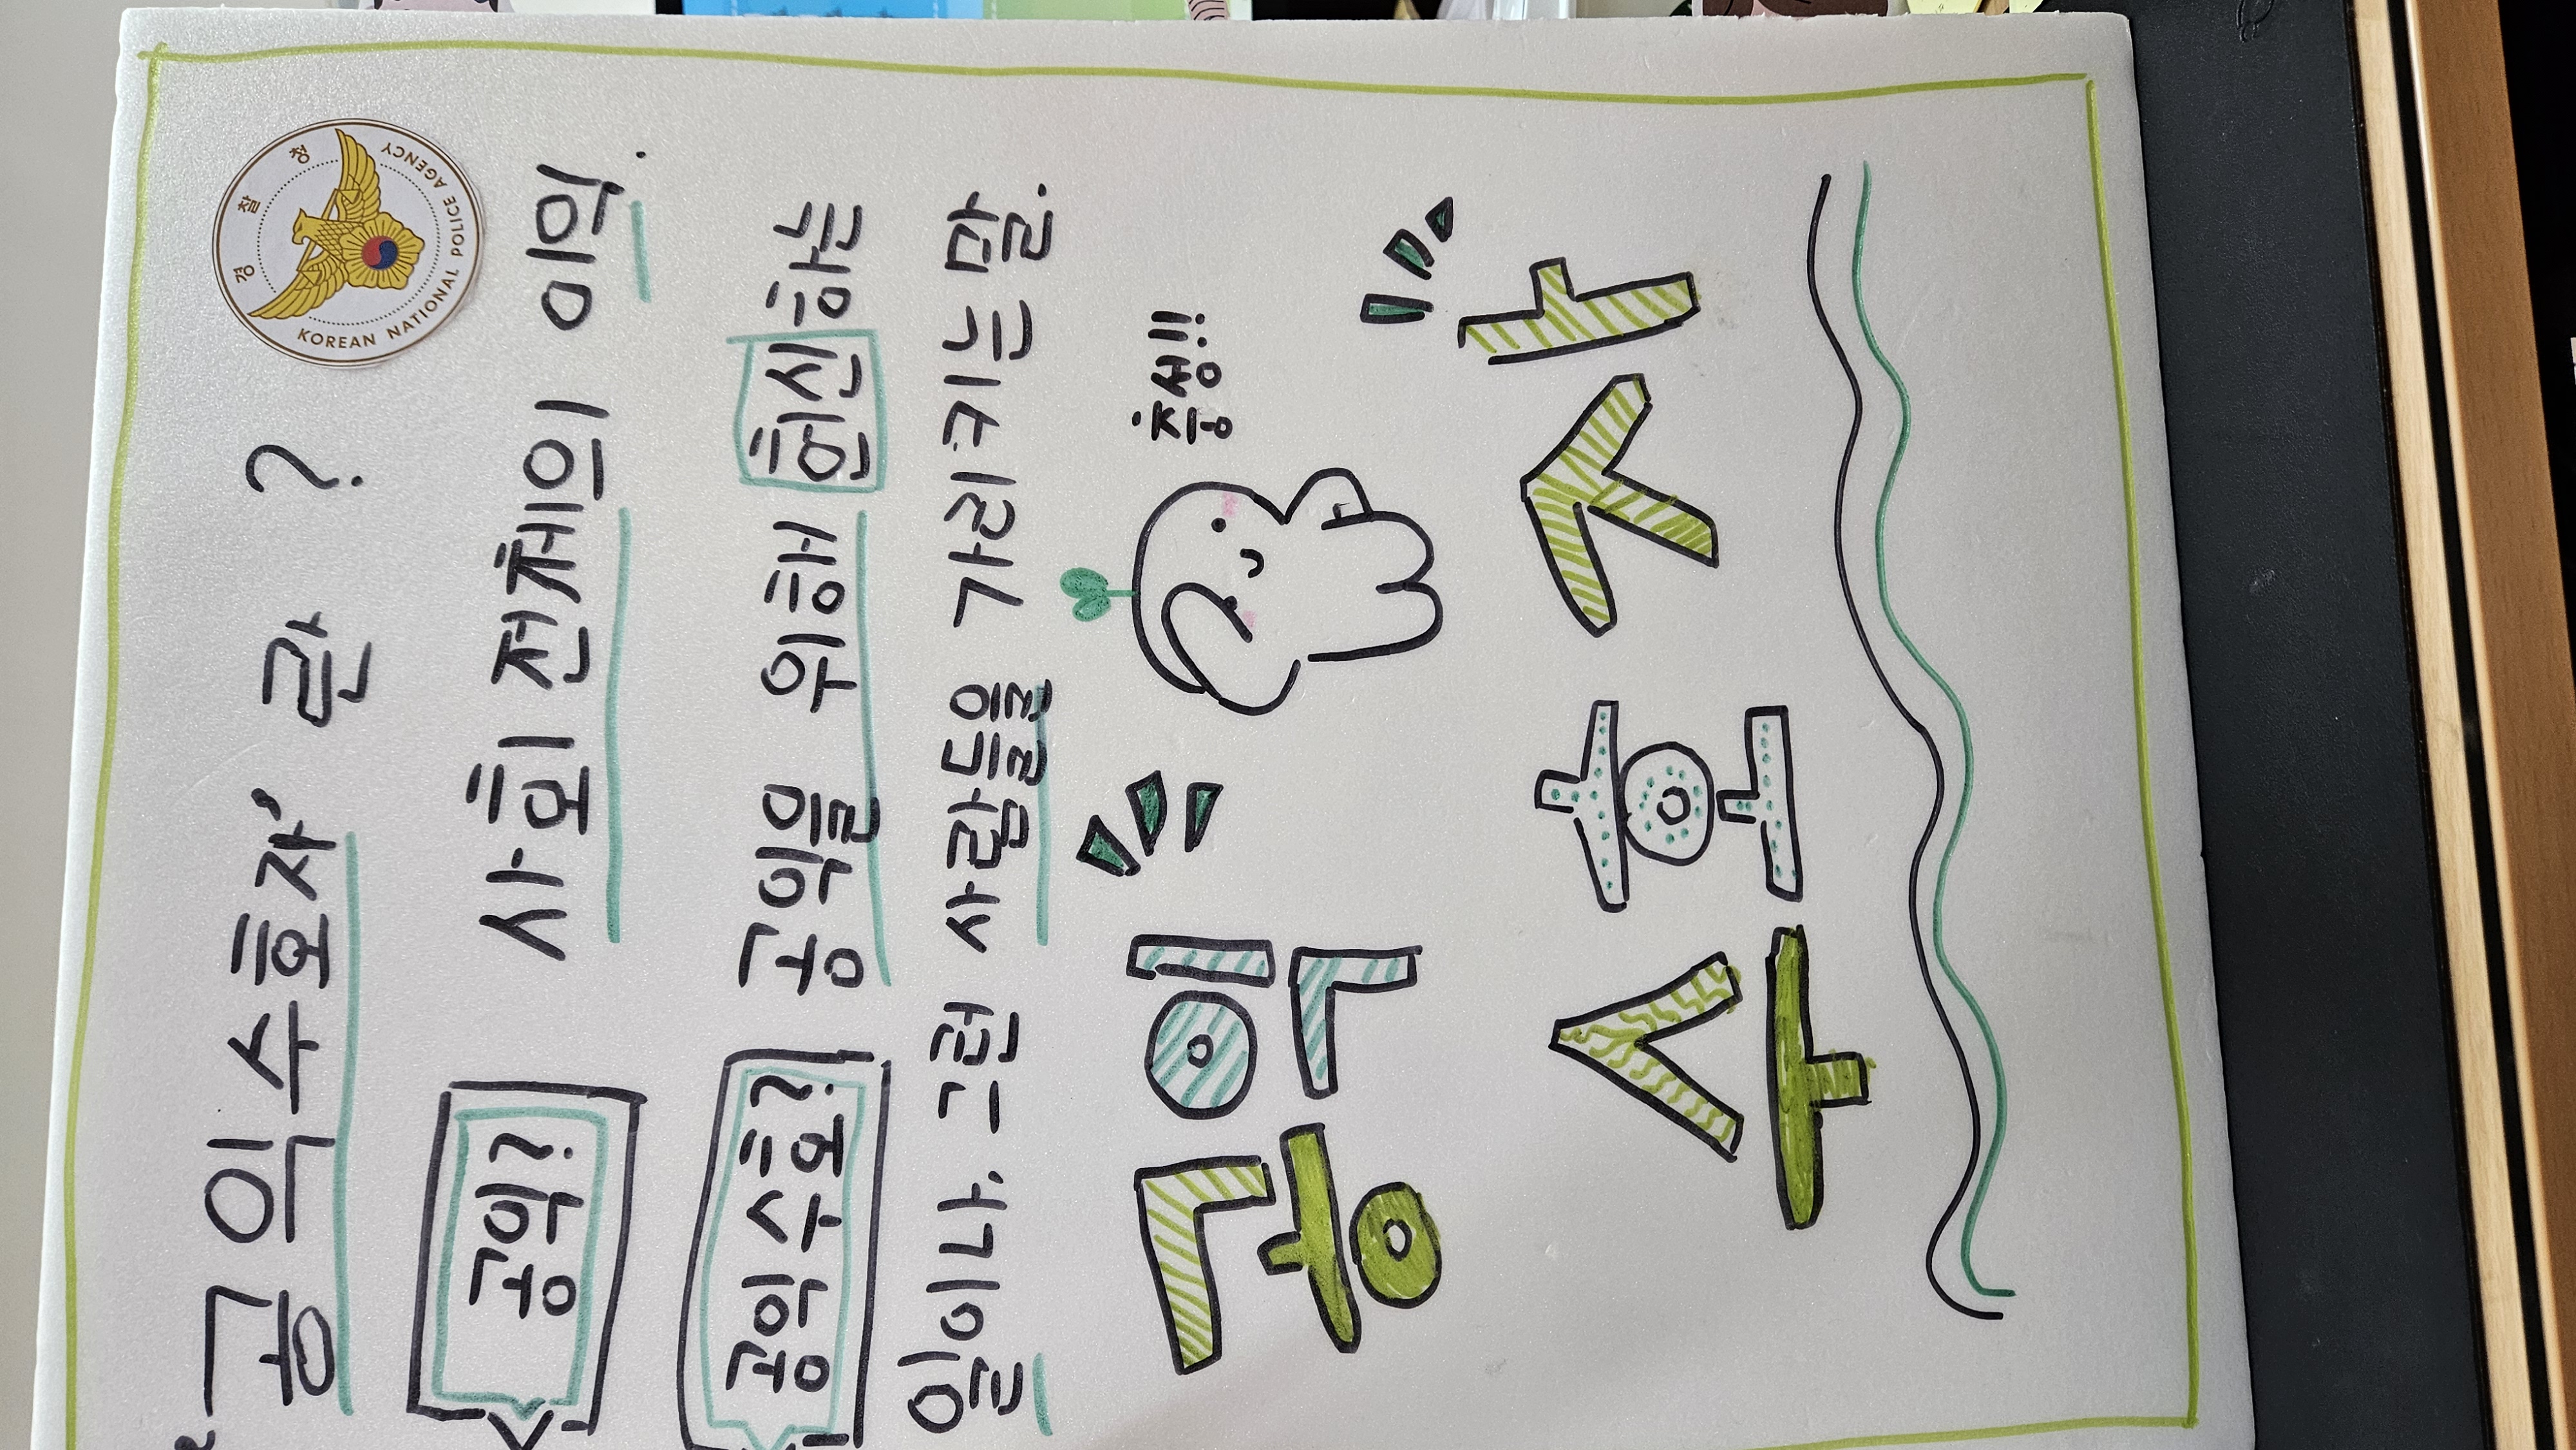 '공익수호자'란?
경찰청
KOREAN NATIONAL POLICE AGENCY
공익? 사회 전체의 이익.
공익수호? 공익을 위해 헌신하는
일이나, 그런 사람들을 가리키는 말.
충성!!
공익
수호자